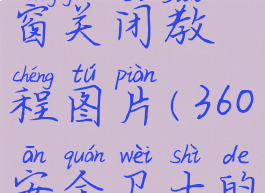 窗关闭教
chéng tú piàn
程图片(360
ān quán wèi shì de
安全卫士的